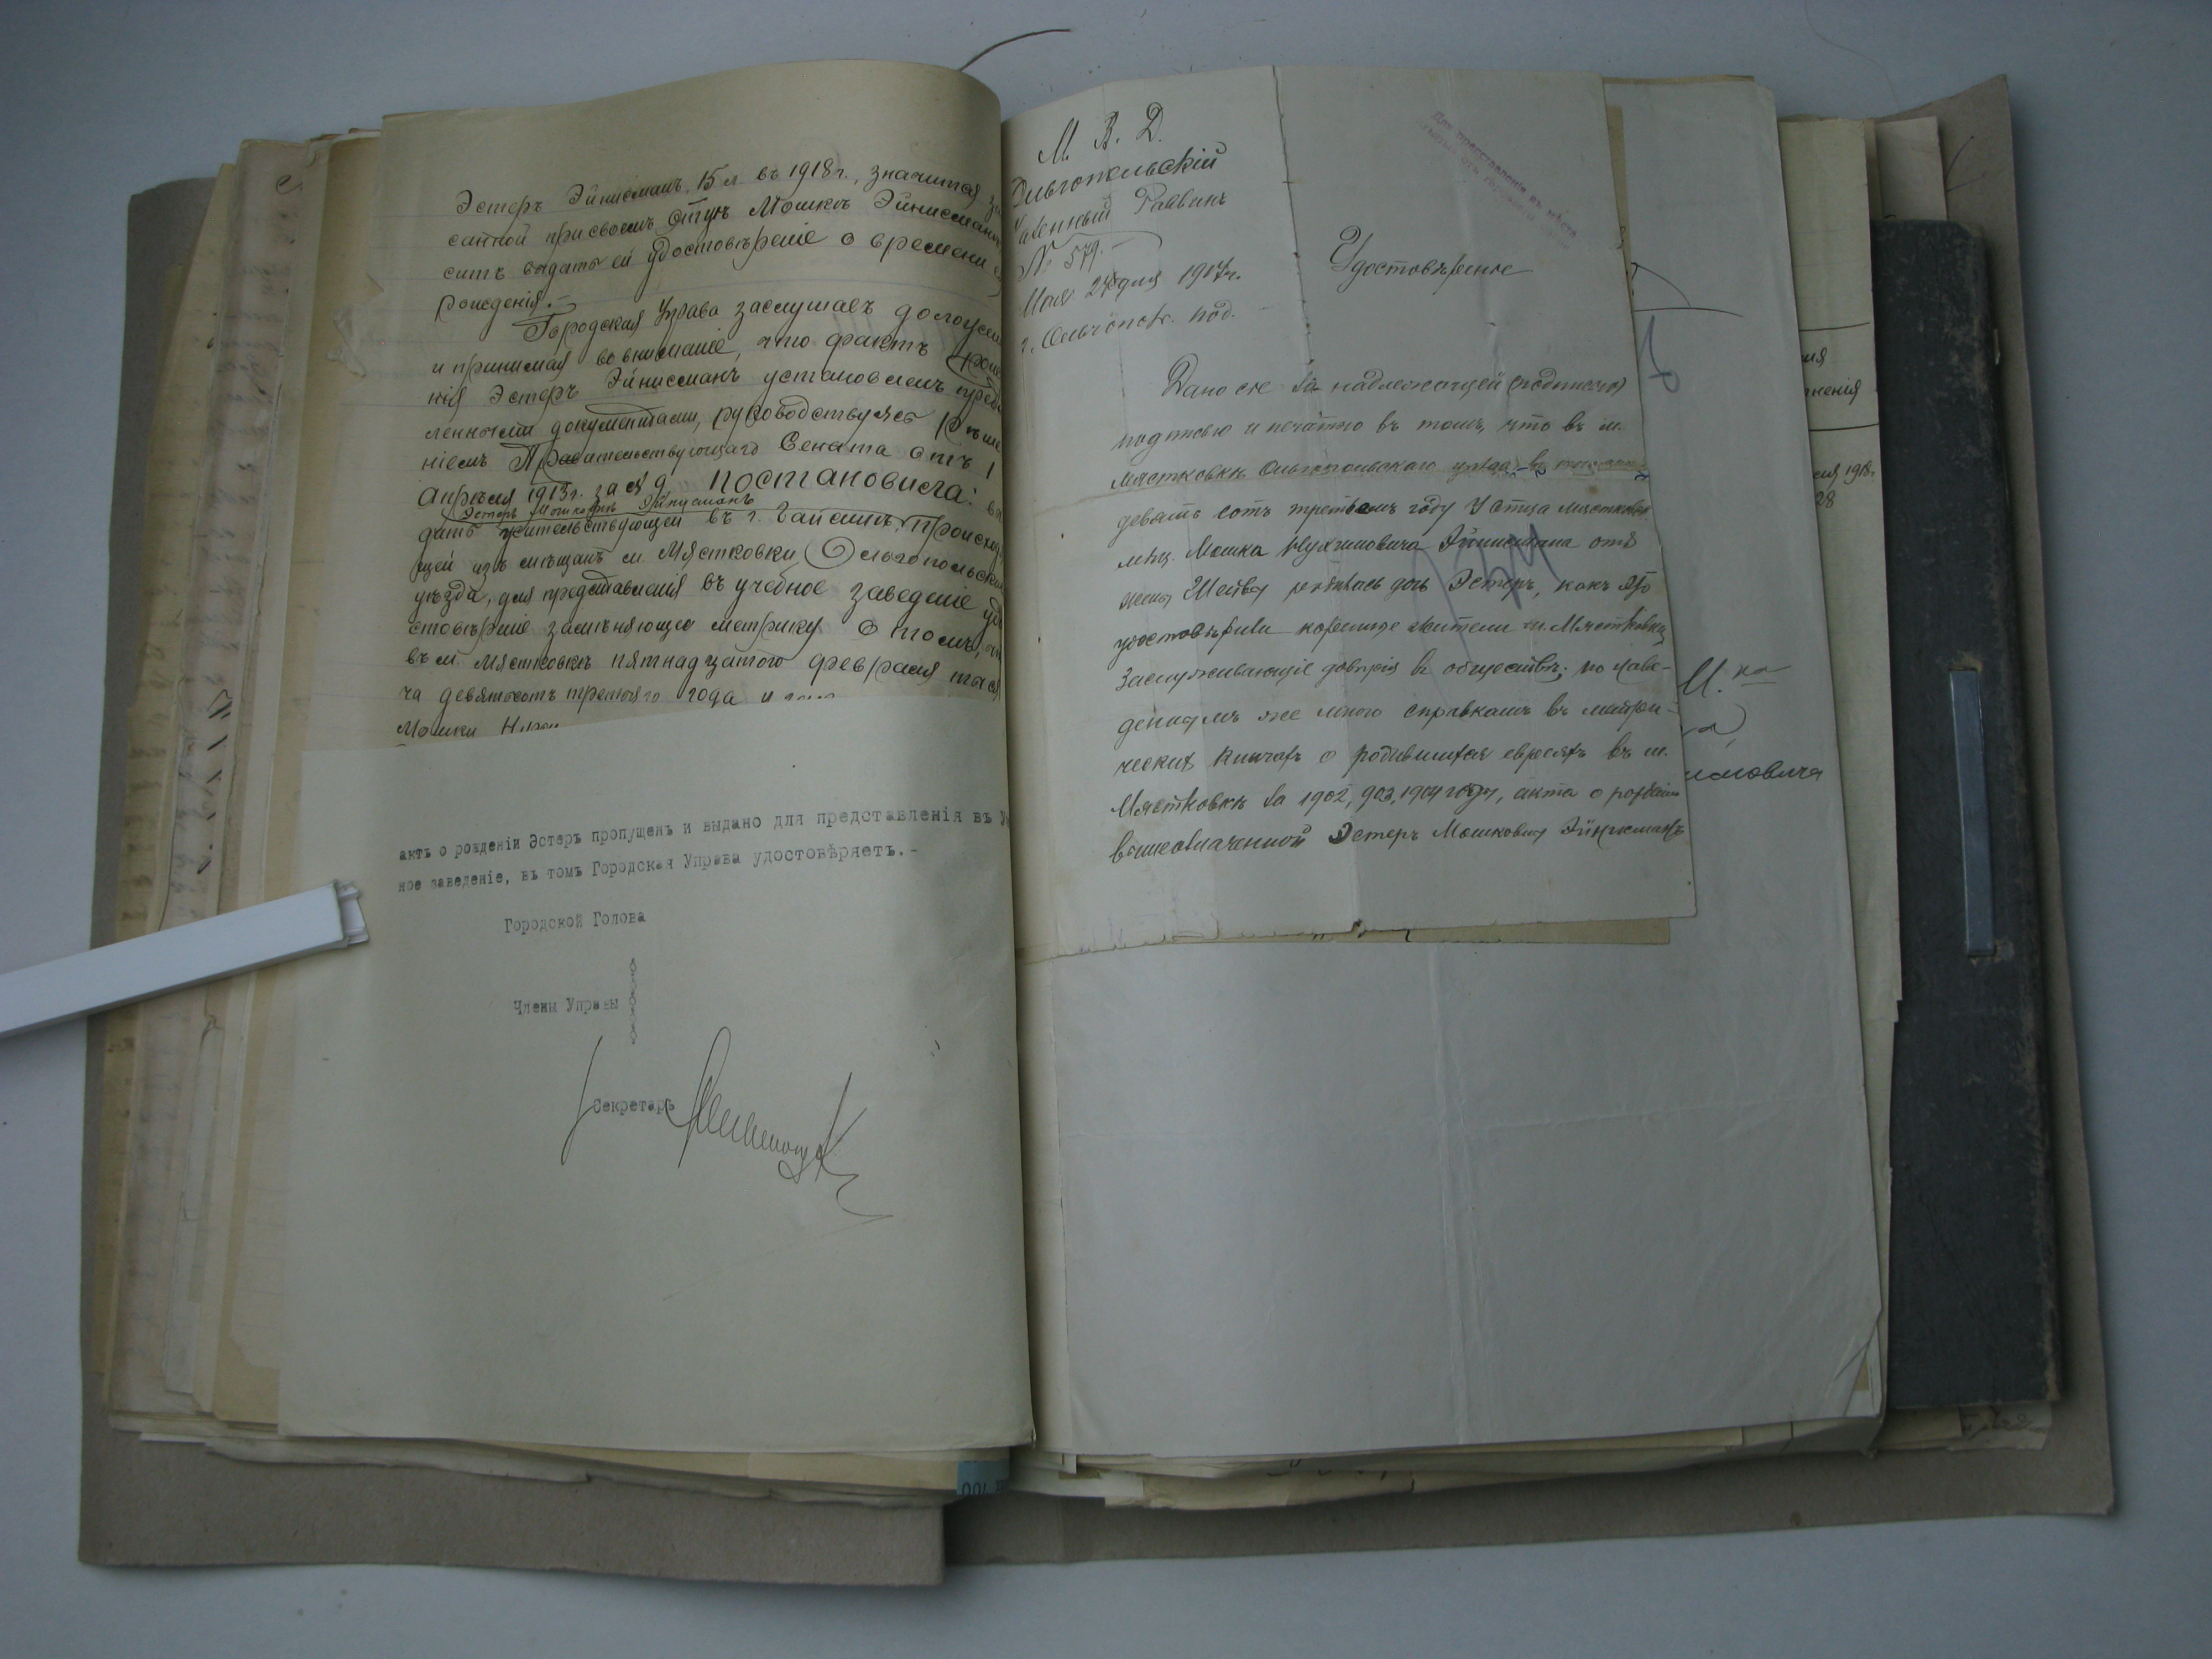 Эстеръ Эйнисманъ, 15 л въ 1918 г., значится
санной при своемъ отцѣ Мошкѣ Эйнисманъ
ситъ выдать ей удостовѣреніе о времени
рожденія.-
Городская Управа заслушавъ
и принимая во вниманіе, что фактъ
нія Эстеръ Эйнисманъ установленъ
ленными документами, руководствуясь
ніемъ Правительствующаго Сената отъ 1
Апрѣля 1913 г. за № 9 постановила:
Эстеръ Мошковнѣ Эйнисманъ
дать жительствующей въ г. Гайсинѣ,
щей изъ мѣщанъ м. Мястковки Ольгопольска
уѣзда, для представленія въ учебное заведеніе
стовѣреніе замѣняющее метрику о томъ,
въ м. Мястковкѣ пятнадцатого февраля тыся
ча девятьсотъ третьяго года и
Мошки
актъ о рожденіи Эстеръ пропущенъ и выдано для представленія въ У
ное заведеніе, въ томъ Городская Управа удостовѣряетъ.-
Городской Голова
Члены Управы
Секретарь
М. В. Д.
Ольгопольскій
Казенный Раввинъ
№ 579.-
24 дня 1917 г.
г. Ольгополь. под.
Для представленія въ
Удостовѣреніе
Дано сіе за надлежащей (подписью)
подписью и печатью въ томъ, что въ м.
Мястковкѣ Ольгопольскаго уѣзда въ
девять сотъ третьемъ году у отца
мѣщ. Мошка Эйнисмана отъ
жены Шейвы родилась дочь Эстеръ, какъ это
удостовѣрили коренные жители м. Мястковки
заслуживающіе довѣрія въ обществѣ; по наве-
деннымъ же мною справкамъ въ метри-
ческихъ книгахъ о родившихся евреяхъ въ м.
Мястковкѣ за 1902, 903, 1904 годы, акта о рожденіи
вышеозначенной Эстеръ Мошковны Эйнисманъ
ненія
1918 г.
28